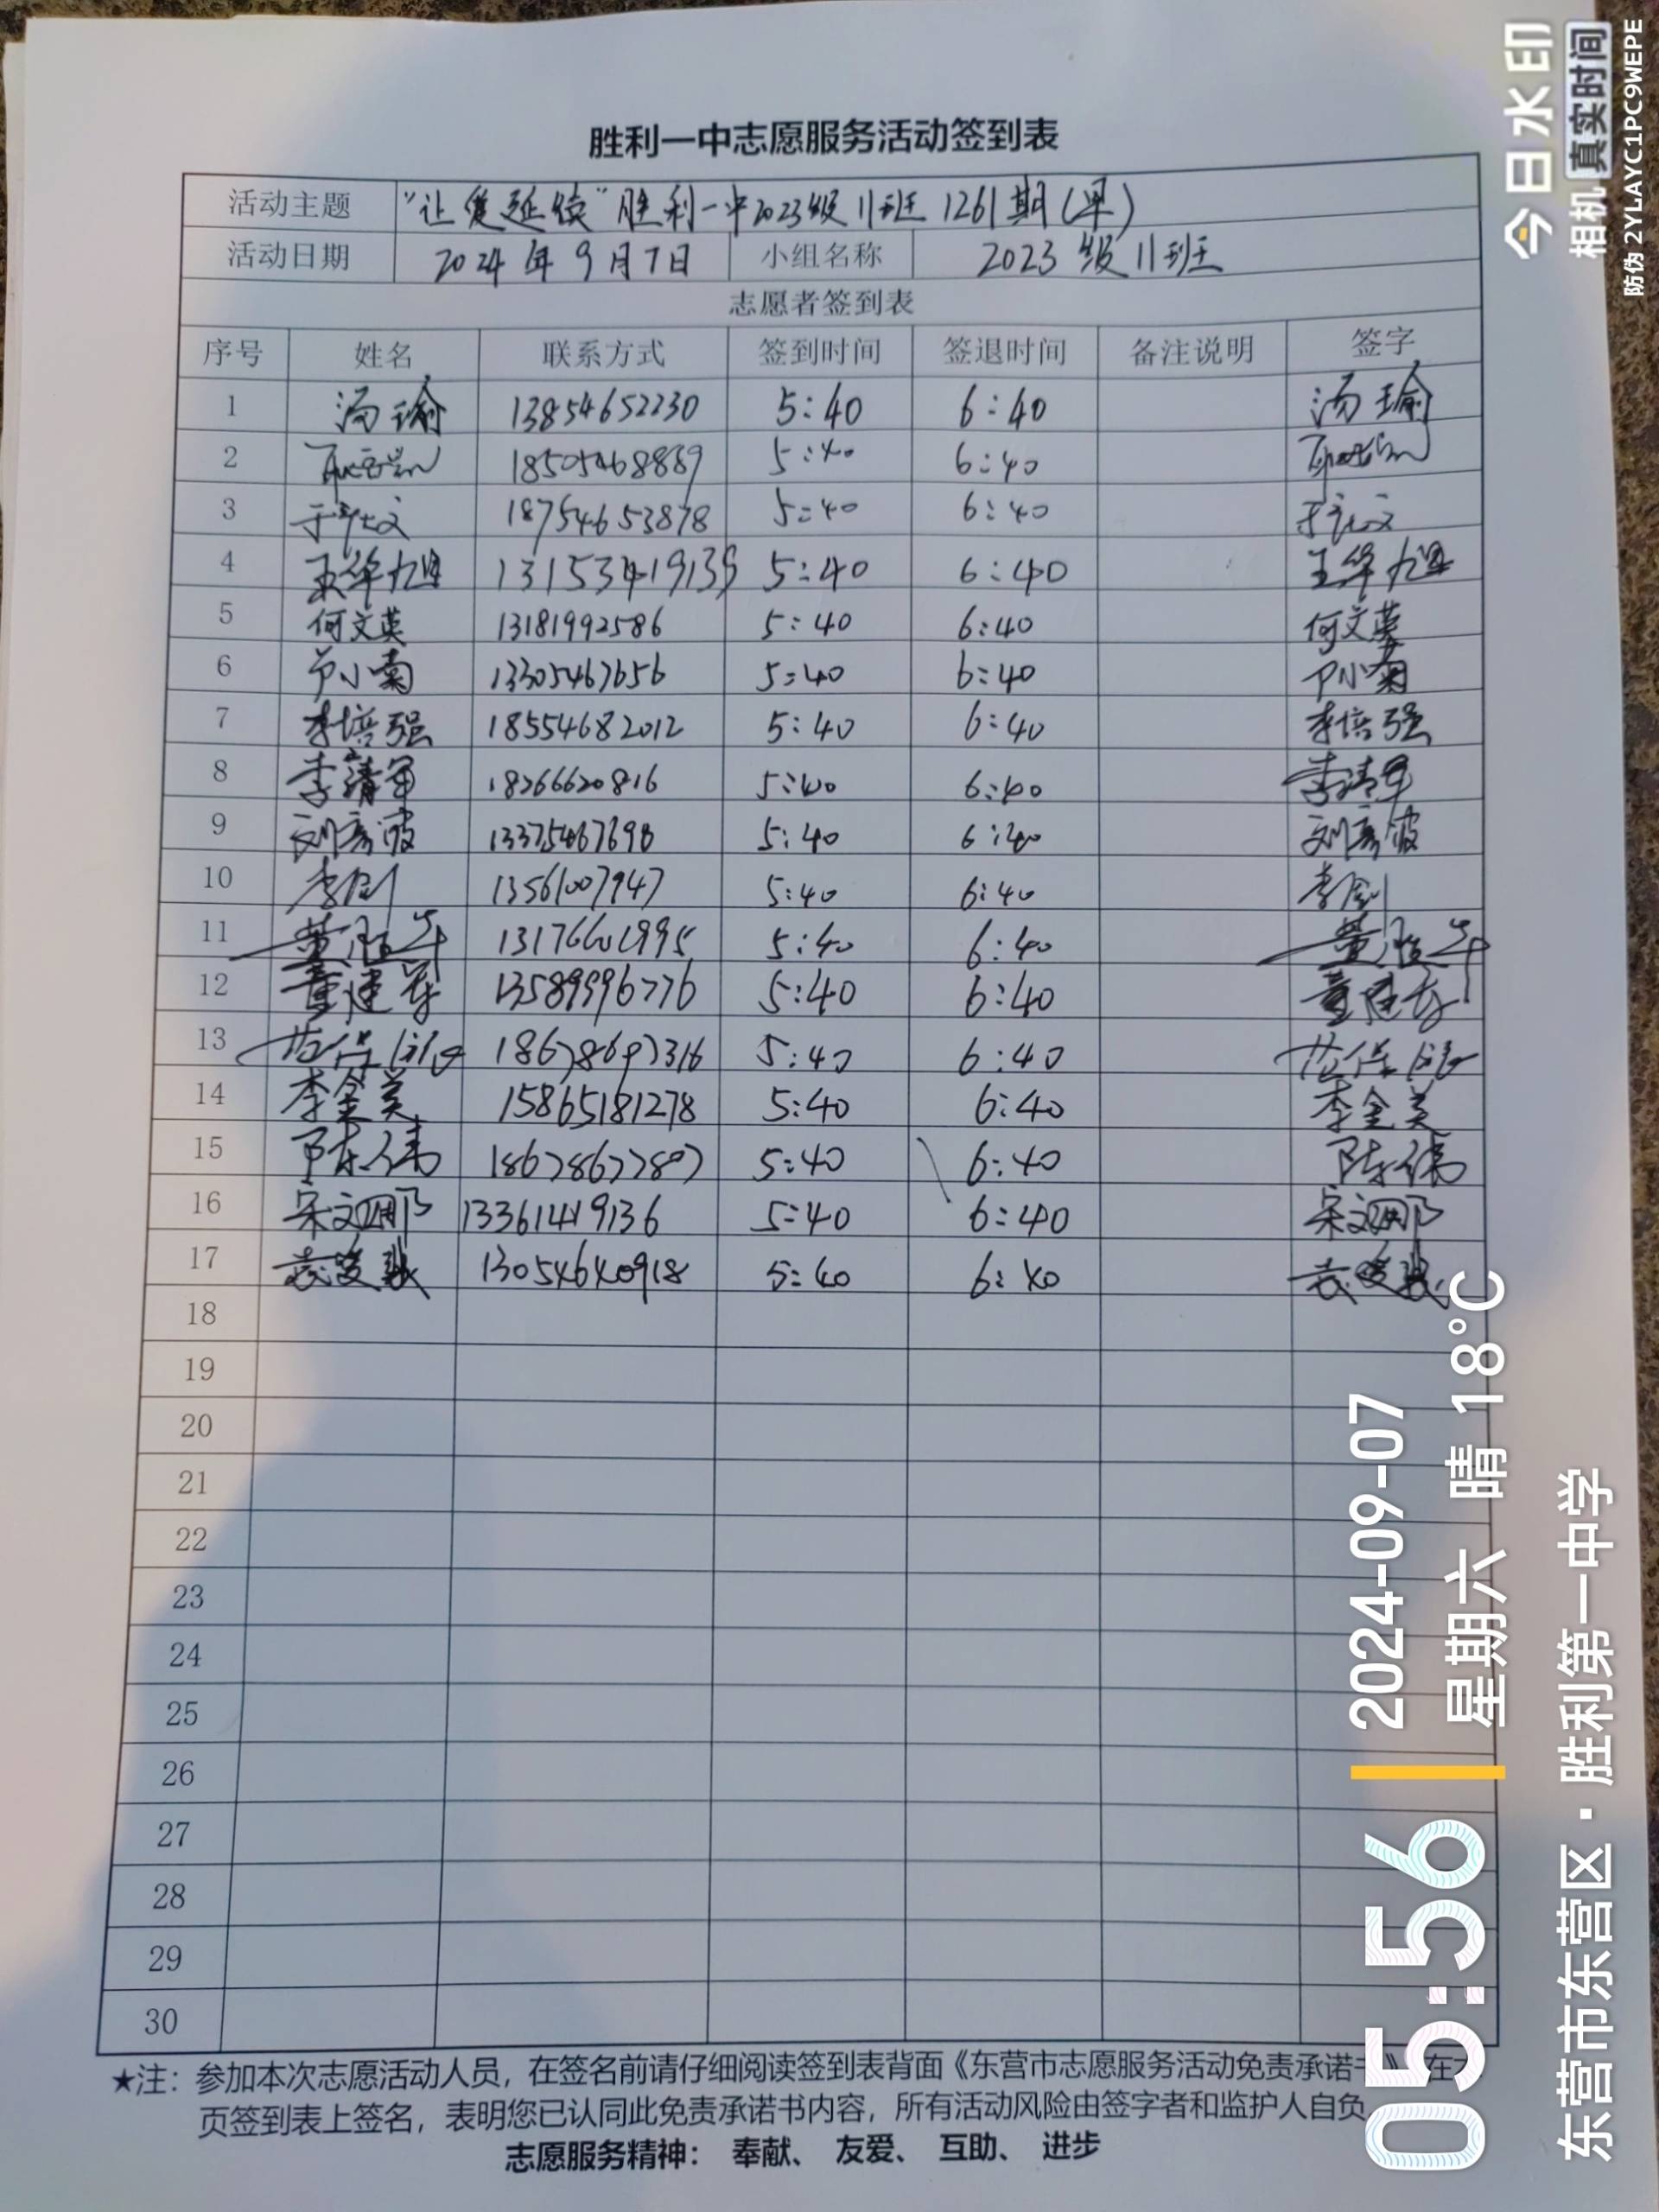 胜利一中志愿服务活动签到表
活动主题 “让爱延续”胜利一中2023级11班1261期(早)
活动日期 2024年9月7日 小组名称 2023级11班
志愿者签到表
序号 姓名 联系方式 签到时间 签退时间 备注说明 签字
1 汤瑜 13854652230 5:40 6:40 汤瑜
2 18505468889 5:40 6:40
3 18754653878 5:40 6:40
4 王华旭 5:40 6:40 王华旭
5 何文英 13181992586 5:40 6:40 何文英
6 13305467656 5:40 6:40
7 李培强 18554682012 5:40 6:40 李培强
8 李靖军 18266620816 5:40 6:40 李靖军
9 刘彦波 13375467698 5:40 6:40 刘彦波
10 李刚 13561007947 5:40 6:40
11 董 5:40 6:40 董
12 董建 13589996776 5:40 6:40 董建
13 18678697316 5:40 6:40
14 李金美 15865181278 5:40 6:40 李金美
15 陈伟 18678677897 5:40 6:40 陈伟
16 宋文娜 13361419136 5:40 6:40 宋文娜
17 13054640918 5:40 6:40
18
19
20
21
22
23
24
25
26
27
28
29
30
★注：参加本次志愿活动人员，在签名前请仔细阅读签到表背面《东营市志愿服务活动免责承诺书》 在本
页签到表上签名，表明您已认同此免责承诺书内容，所有活动风险由签字者和监护人自负
志愿服务精神： 奉献、 友爱、 互助、 进步
今日水印
相机 真实时间
防伪 2YLAYC1PC9WEPE
05:56
2024-09-07
星期六 晴 18℃
东营市东营区·胜利第一中学